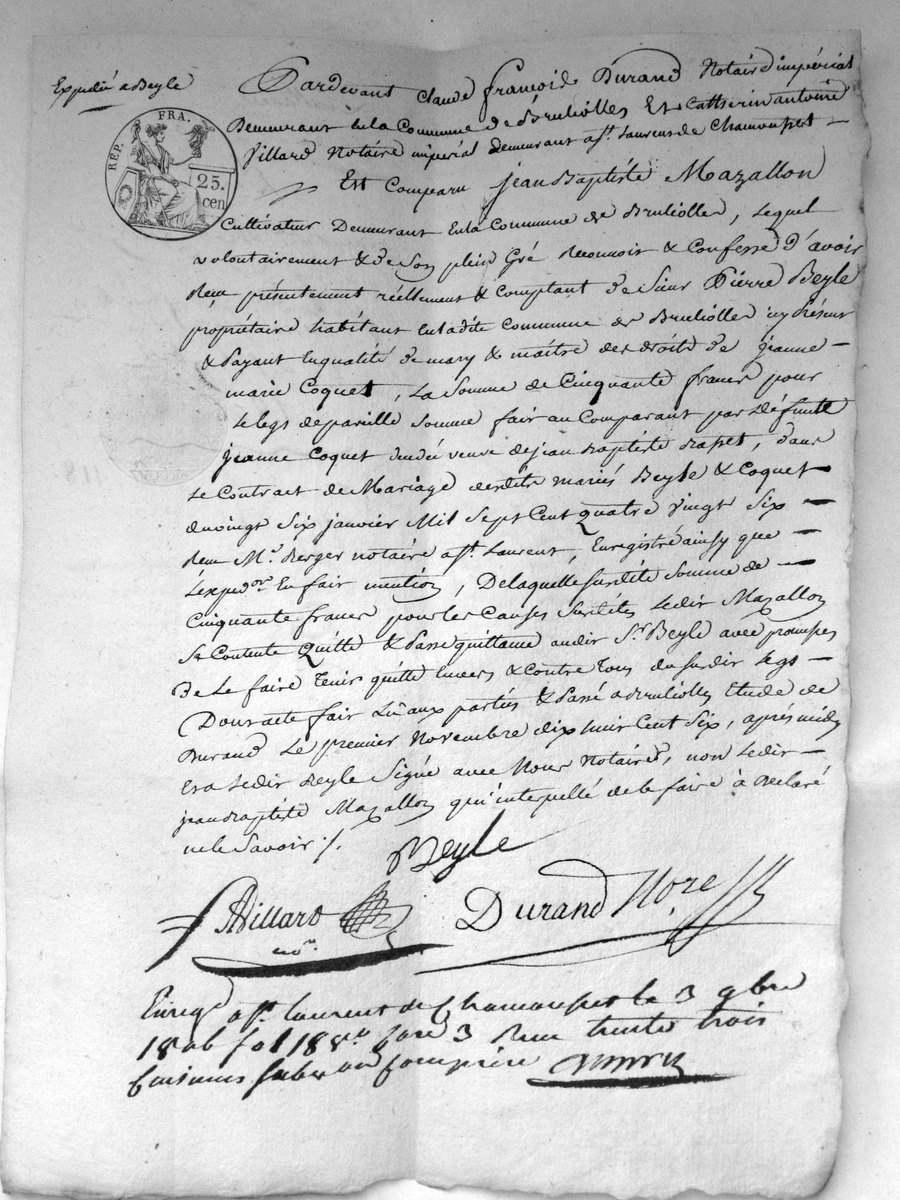 Expédié a Beyle
RÉP. FRA.
25.
cen
Pardevant Claude françois Durand Notaire impérial
Demeurant en la Commune de Brulliolles Et Catherin antoine
Villard Notaire impérial demeurant a St. Laurens de Chamousset
Est Comparu jean Baptiste Mazallon
Cultivateur Demeurant en la Commune de Brulliolles, lequel
volontairement & de son plein Gré Reconnoit & Confesse D'avoir
Reçu présentement réellement & Comptant de Sieur Pierre Beyle
propriétaire habitant en ladite Commune de Brulliolles icy Présent
& Payant En qualité de mary & maître des droits de jeanne
marie Coquet, La Somme de Cinquante francs pour
Le legs de pareille Somme fait au Comparant par Défunte
jeanne Coquet veuve de jean Baptiste , dans
Le Contract de Mariage desdits mariés Beyle & Coquet
du vingt Six janvier Mil Sept Cent quatre vingt Six
Reçu Me. Berger notaire a St. Laurent, Enregistré ainsy que
L'expedon. En fait mention, De laquelle Susdite Somme de
Cinquante francs pour les Causes Susdites Ledit Mazallon
Se Contente Quitte & Passe quittance audit Sr. Beyle avec promesse
De Le faire Tenir quitte Envers & Contre Tous du susdit Legs
Dont acte fait Lû aux parties & Passé a Brulliolles Etude de
Durand Le premier Novembre dix huit Cent Six, après midy
Et a Ledit Beyle Signé avec Nous Notaires, non Ledit
jean Baptiste Mazallon qui interpellé de le faire à Déclaré
ne le Savoir ./.
Beyle
AVillard
nore.
Durand Nore
Enregé a St. laurent de Chamousset le 3 9bre
1806 fol 118 vo Case 3 Reçu trente trois
Centimes subvon comprise